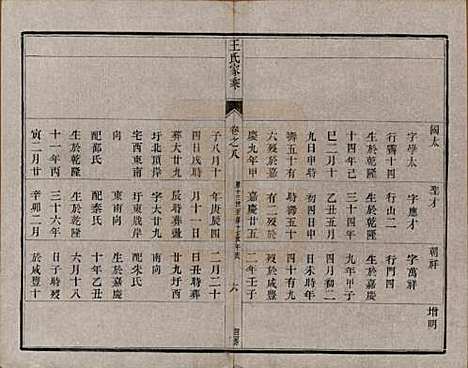 國太 聖才 朝祥 增明
字學太 字應才 字萬祥
行山二 行門四
生於乾隆 生於乾隆 生於嘉慶
十四年己 三十年 九年甲子
巳二月十 乙丑五月 十二月十
九日申時 初四日申 日未時
壽五十有 時壽五十 四十有九
六歿於嘉 有二歿於 歿於咸豐
慶九年甲 嘉慶廿五 二年壬子
王氏家乘
卷之八
六
子八月十 年庚辰四 二月二十
四日戌時 月十一日 日丑時葬
葬大廿九 辰時葬大 廿九圩西
圩北頂岸 字大廿九 南向
宅西東南 圩東南 配朱氏
向 東南向 生於嘉慶
配邵氏 配秦氏 十年乙丑
生於乾隆 生於乾隆 六月十八
十一年丙 三十六年 日子時歿
寅二月廿 辛卯二月 於咸豐十